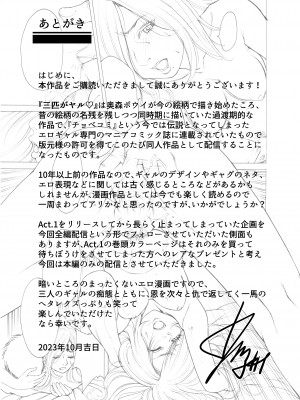 あとがき
はじめに、
本作品をご購読いただきまして誠にありがとうございます！
『三匹がヤル♡』は奥森ボウイが今の絵柄で描き始めたころ、
昔の絵柄の名残を残しつつ同時期に描いていた過渡期的な
作品で、『チョベコミ』という今では伝説となってしまった
エロギャル専門のマニアコミック誌に連載されていたもので
版元様の許可を得てこのたび同人作品として配信することに
なったものです。
10年以上前の作品なので、ギャルのデザインやギャグのネタ、
エロ表現などに関しては古く感じるところなどがあるかも
しれませんが、漫画作品としては今でも楽しく読めるので
一周まわってアリかなと思ったのですがいかがでしょうか？
Act.1をリリースしてから長らく止まってしまっていた企画を
今回全編配信という形でフォローさせていただいた側面も
ありますが、Act.1の巻頭カラーページはそれのみを買って
待ちぼうけをさせてしまった方へのレアなプレゼントと考え
今回は本編のみの配信とさせていただきました。
暗いところのまったくないエロ漫画ですので、
三人のギャルの痴態とともに、恩を次々と仇で返してく一馬の
ヘタレクズっぷりも笑って
楽しんでいただけた
なら幸いです。
2023年10月吉日